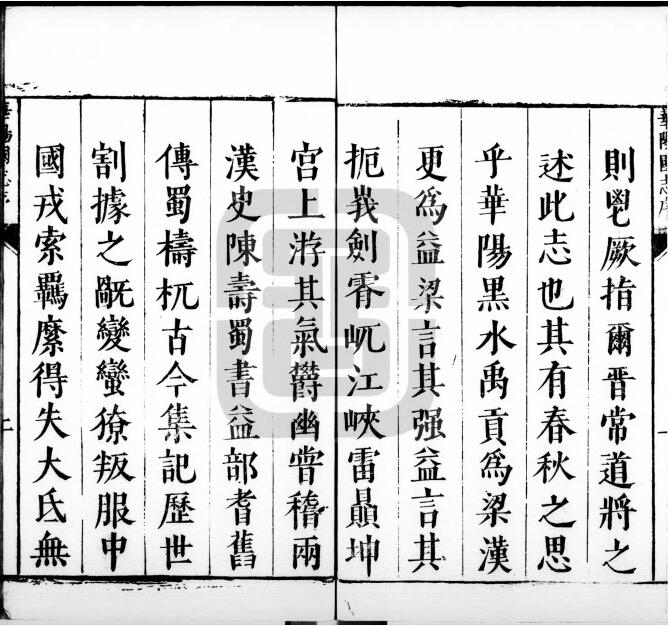 華陽國志序
則鬯厥指爾晉常道將之
述此志也其有春秋之思
乎華陽黑水禹貢爲梁漢
更爲益梁言其强益言其
扼峩劍霄屼江峽雷贔坤
宫上游其氣欝幽嘗稽兩
漢史陳壽蜀書益部耆舊
傳蜀檮杌古今集記歷世
割據之變蠻獠叛服中
國戎索羈縻得失大氐無